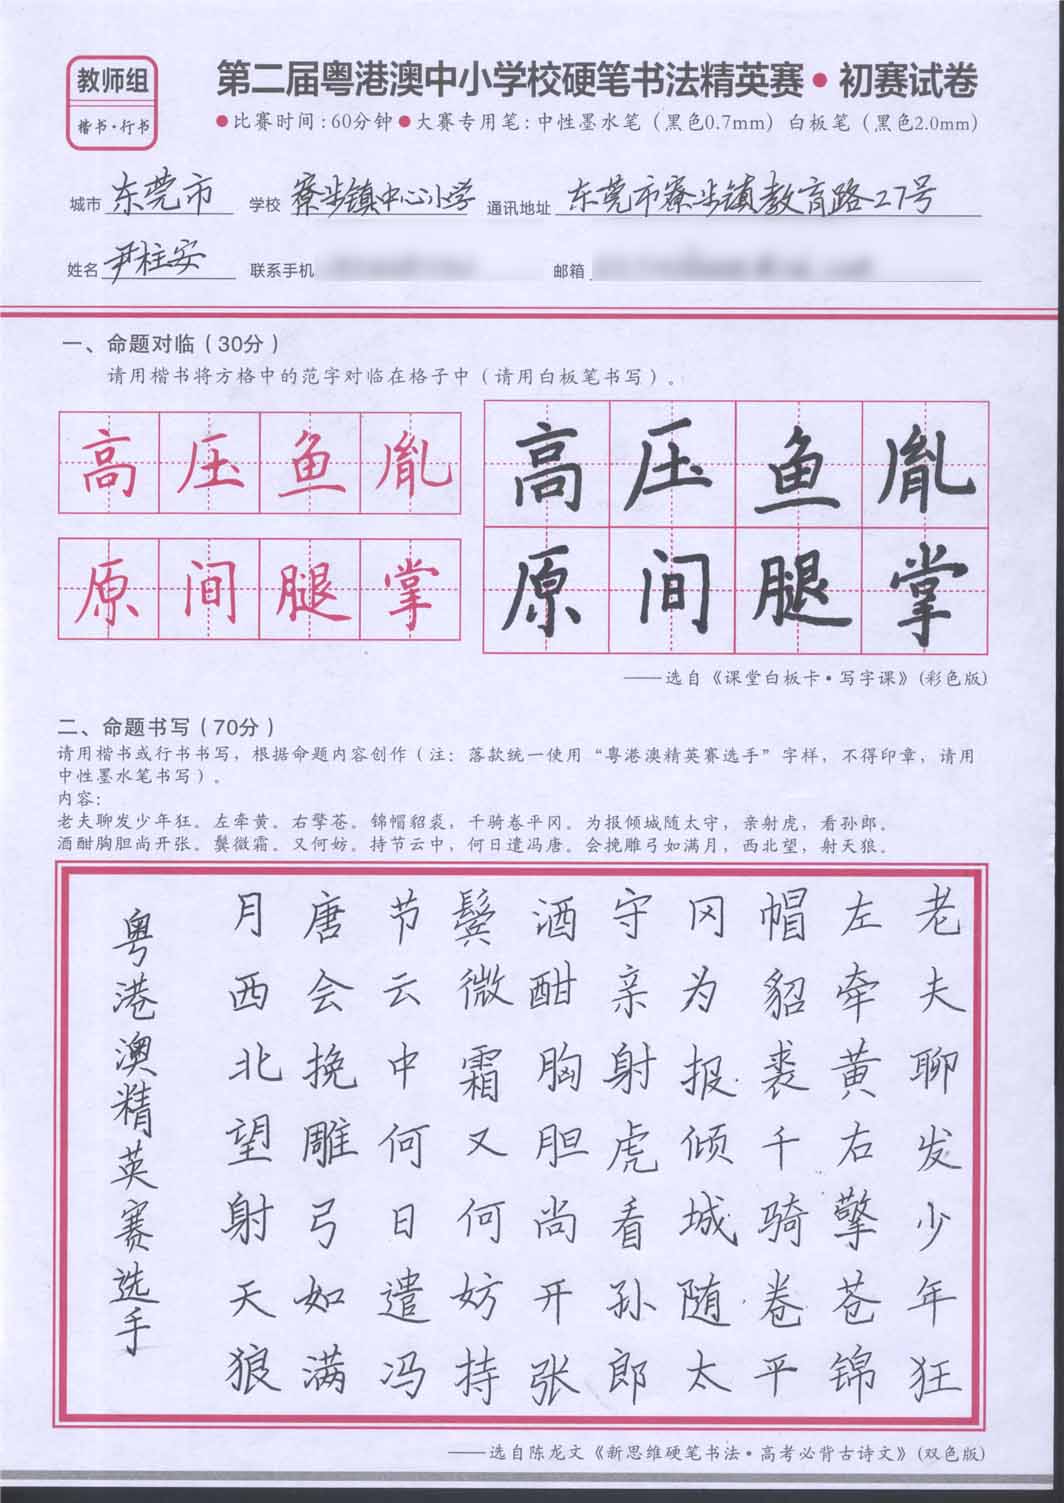 教师组
楷书·行书
第二届粤港澳中小学校硬笔书法精英赛·初赛试卷
●比赛时间:60分钟●大赛专用笔:中性墨水笔（黑色0.7mm）白板笔（黑色2.0mm）
城市 东莞市 学校 寮步镇中心小学 通讯地址 东莞市寮步镇教育路27号
姓名 尹柱安 联系手机 邮箱
一、命题对临（30分）
请用楷书将方格中的范字对临在格子中（请用白板笔书写）。
高压鱼胤
原间腿掌
高压鱼胤
原间腿掌
——选自《课堂白板卡·写字课》(彩色版)
二、命题书写（70分）
请用楷书或行书书写，根据命题内容创作（注：落款统一使用“粤港澳精英赛选手”字样，不得印章，请用
中性墨水笔书写）。
内容：
老夫聊发少年狂。左牵黄。右擎苍。锦帽貂裘，千骑卷平冈。为报倾城随太守，亲射虎，看孙郎。
酒酣胸胆尚开张。鬓微霜。又何妨。持节云中，何日遣冯唐。会挽雕弓如满月，西北望，射天狼。
老夫聊发少年狂
左牵黄右擎苍锦
帽貂裘千骑卷平
冈为报倾城随太
守亲射虎看孙郎
酒酣胸胆尚开张
鬓微霜又何妨持
节云中何日遣冯
唐会挽雕弓如满
月西北望射天狼
粤港澳精英赛选手
——选自陈龙文《新思维硬笔书法·高考必背古诗文》(双色版)